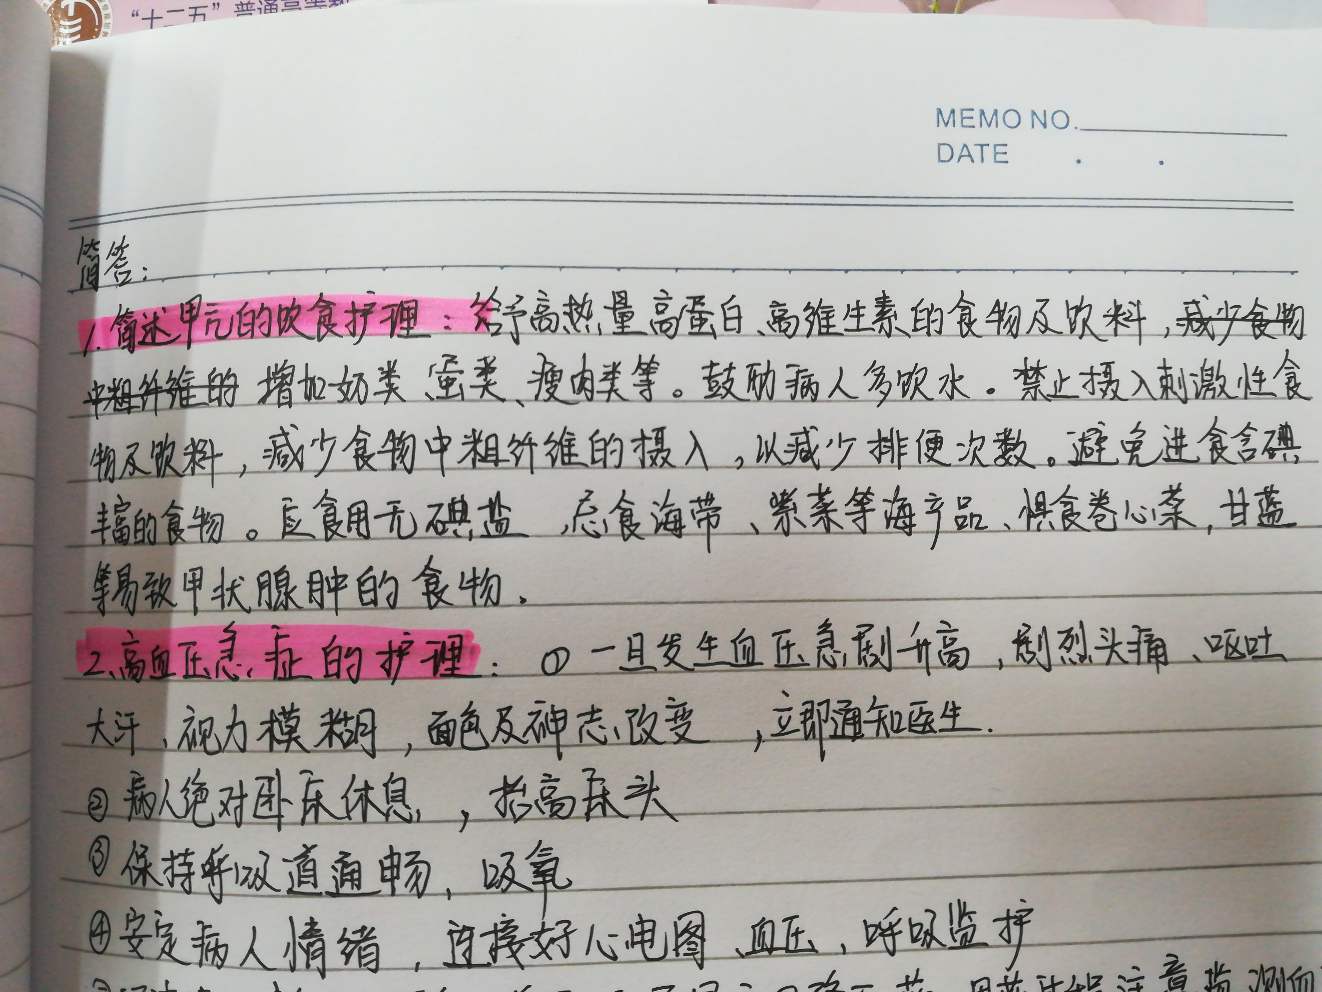 "十二五"普通高等教
MEMO NO.
DATE . .
简答:
1.简述甲亢的饮食护理:给予高热量高蛋白、高维生素的食物及饮料,减少食物
中粗纤维的 增加奶类、蛋类、瘦肉类等。鼓励病人多饮水。禁止摄入刺激性食
物及饮料,减少食物中粗纤维的摄入,以减少排便次数。避免进食含碘
丰富的食物。应食用无碘盐、忌食海带、紫菜等海产品、惧食卷心菜,甘蓝
等易致甲状腺肿的食物.
2.高血压急症的护理:①一旦发生血压急剧升高,剧烈头痛、呕吐
大汗、视力模糊,面色及神志改变,立即通知医生.
②病人绝对卧床休息,抬高床头
③保持呼吸道通畅、吸氧
④安定病人情绪,连接好心电图、血压、呼吸监护
注意监测血